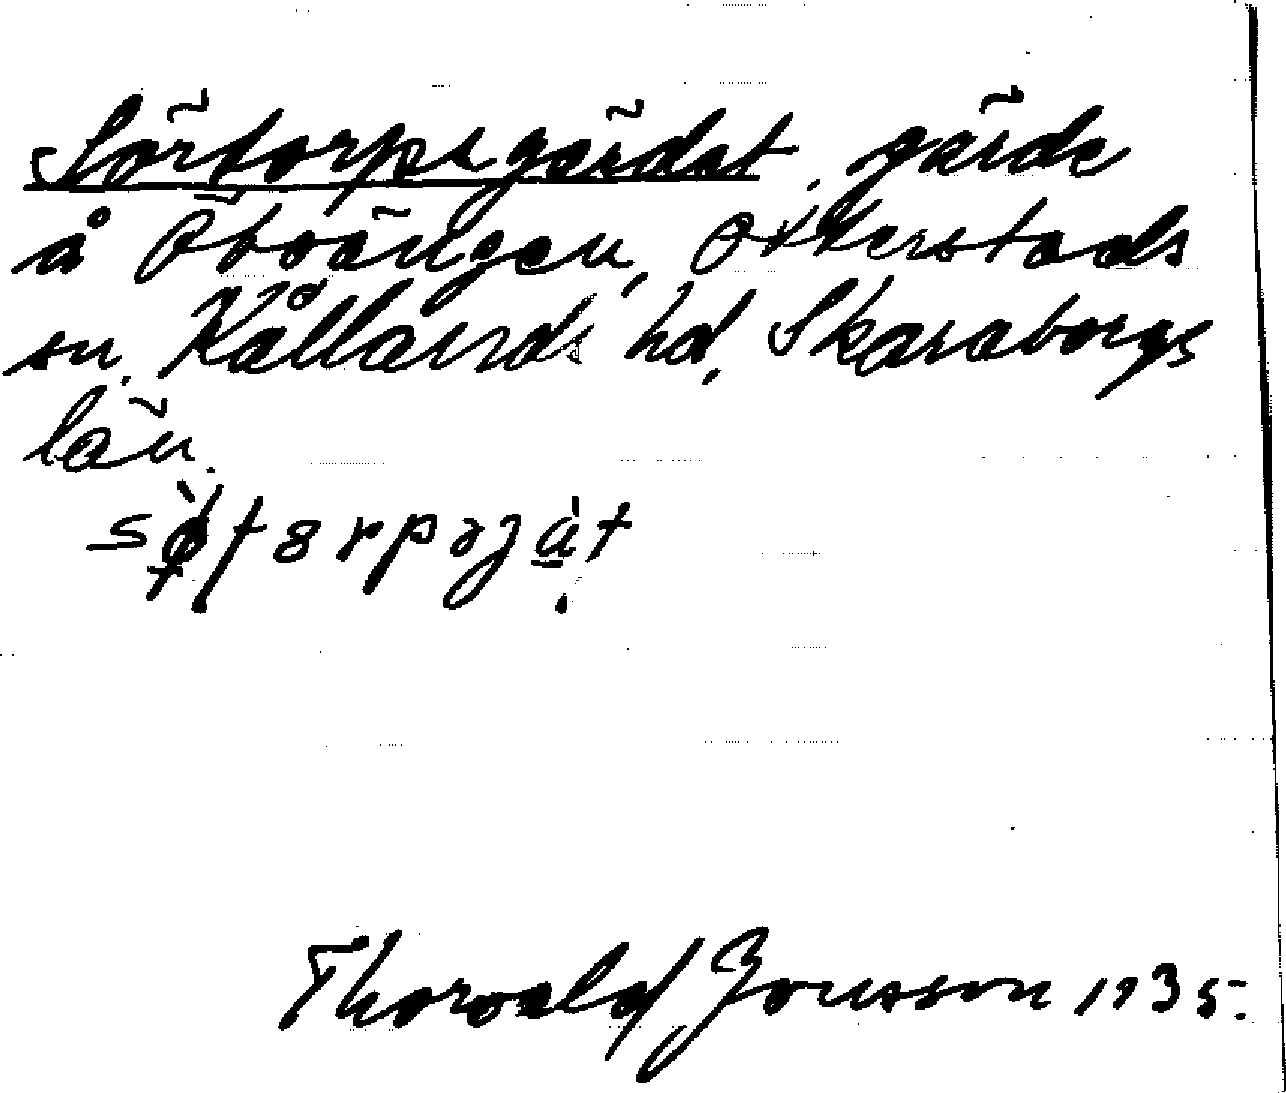 Sörtorpsgärdet, gärde
å Öboängen, Otterstads
sn. Kållands hd, Skaraborgs
län.
Thorvald Jonsson 1935.